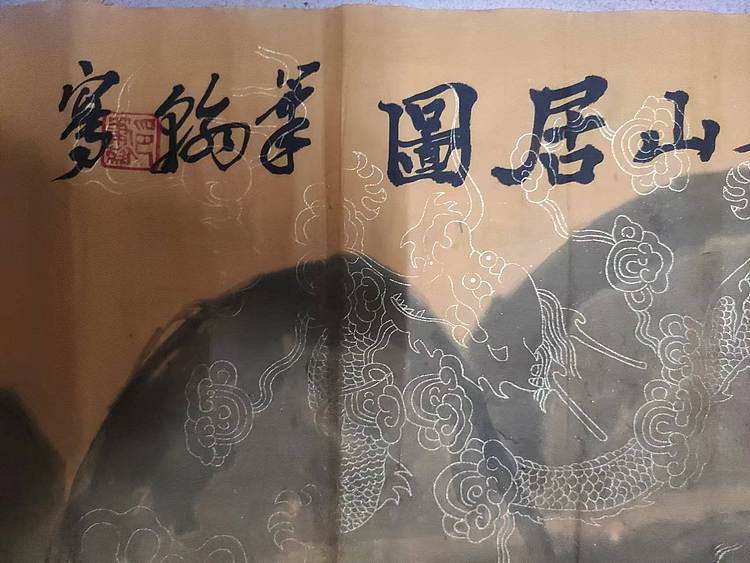 山居圖筆翰寫